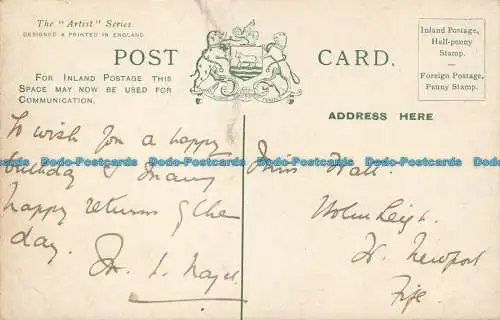 The "Artist" Series
DESIGNED & PRINTED IN ENGLAND
POST CARD.
FOR INLAND POSTAGE THIS
SPACE MAY NOW BE USED FOR
COMMUNICATION.
Inland Postage,
Half-penny
Stamp.
Foreign Postage,
Penny Stamp.
ADDRESS HERE
To wish you a happy
birthday & many
happy returns of the
day.
Miss Watt.
W. Newport
Fife.
Dodo-Postcards Dodo-Postcards Dodo-Postcards Dodo-Postcards